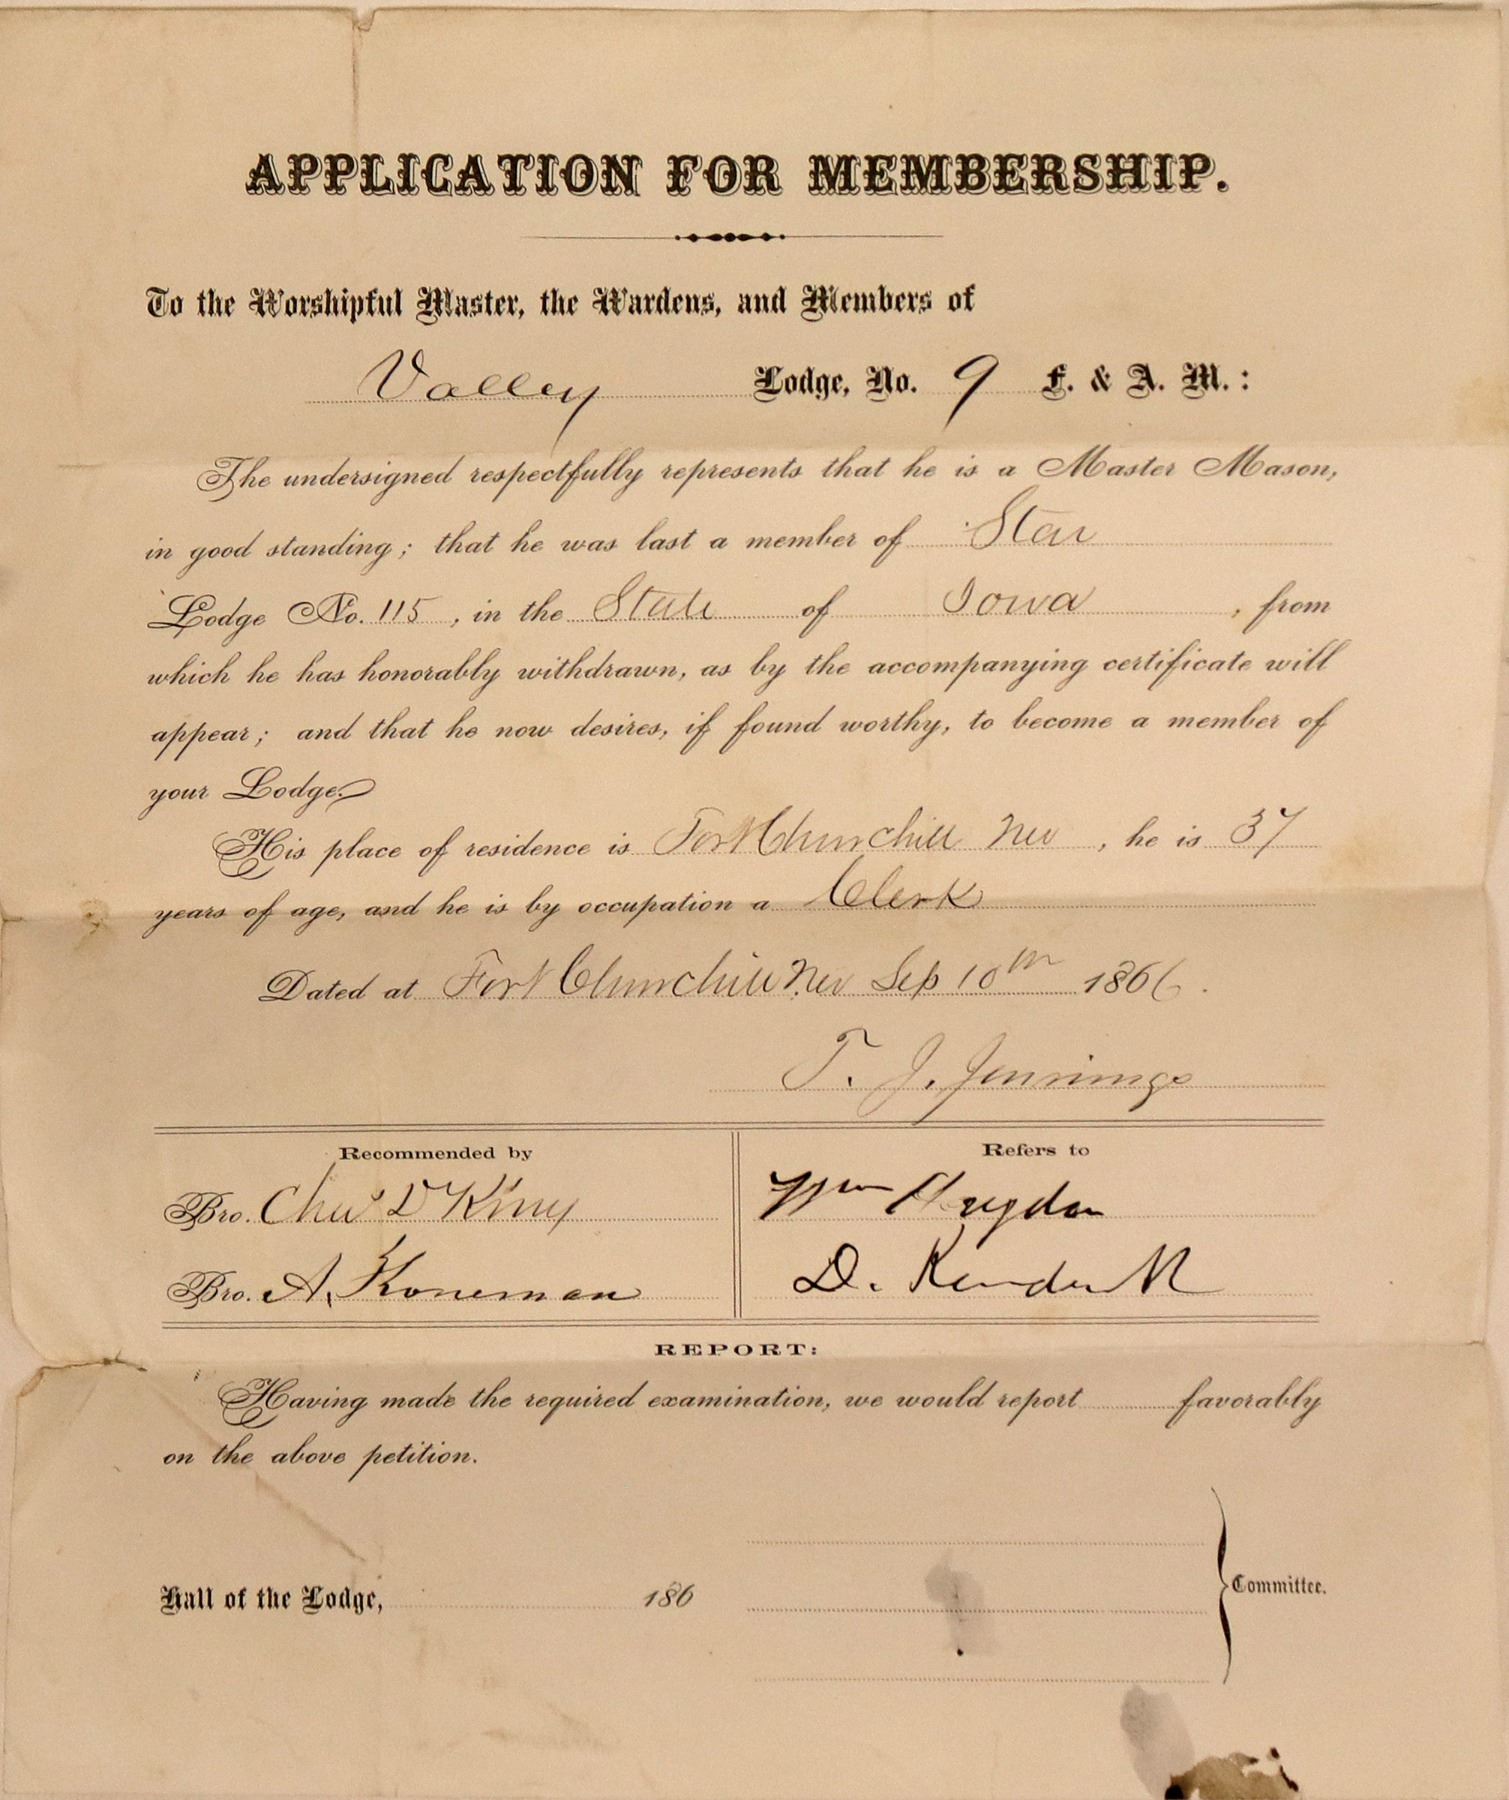 APPLICATION FOR MEMBERSHIP.
To the Worshipful Master, the Wardens, and Members of
Valley Lodge, No. 9 F. & A. M.:
The undersigned respectfully represents that he is a Master Mason,
in good standing; that he was last a member of Star
Lodge No. 115, in the State of Iowa, from
which he has honorably withdrawn, as by the accompanying certificate will
appear; and that he now desires, if found worthy, to become a member of
your Lodge.
His place of residence is Fort Churchill Nev, he is 37
years of age, and he is by occupation a Clerk
Dated at Fort Churchill Nev Sep 10th 1866.
T. J. Jennings
Recommended by
Refers to
Bro. Chas D King
Wm
Bro. A. Koneman
D.
REPORT:
Having made the required examination, we would report favorably
on the above petition.
Hall of the Lodge, 186
Committee.